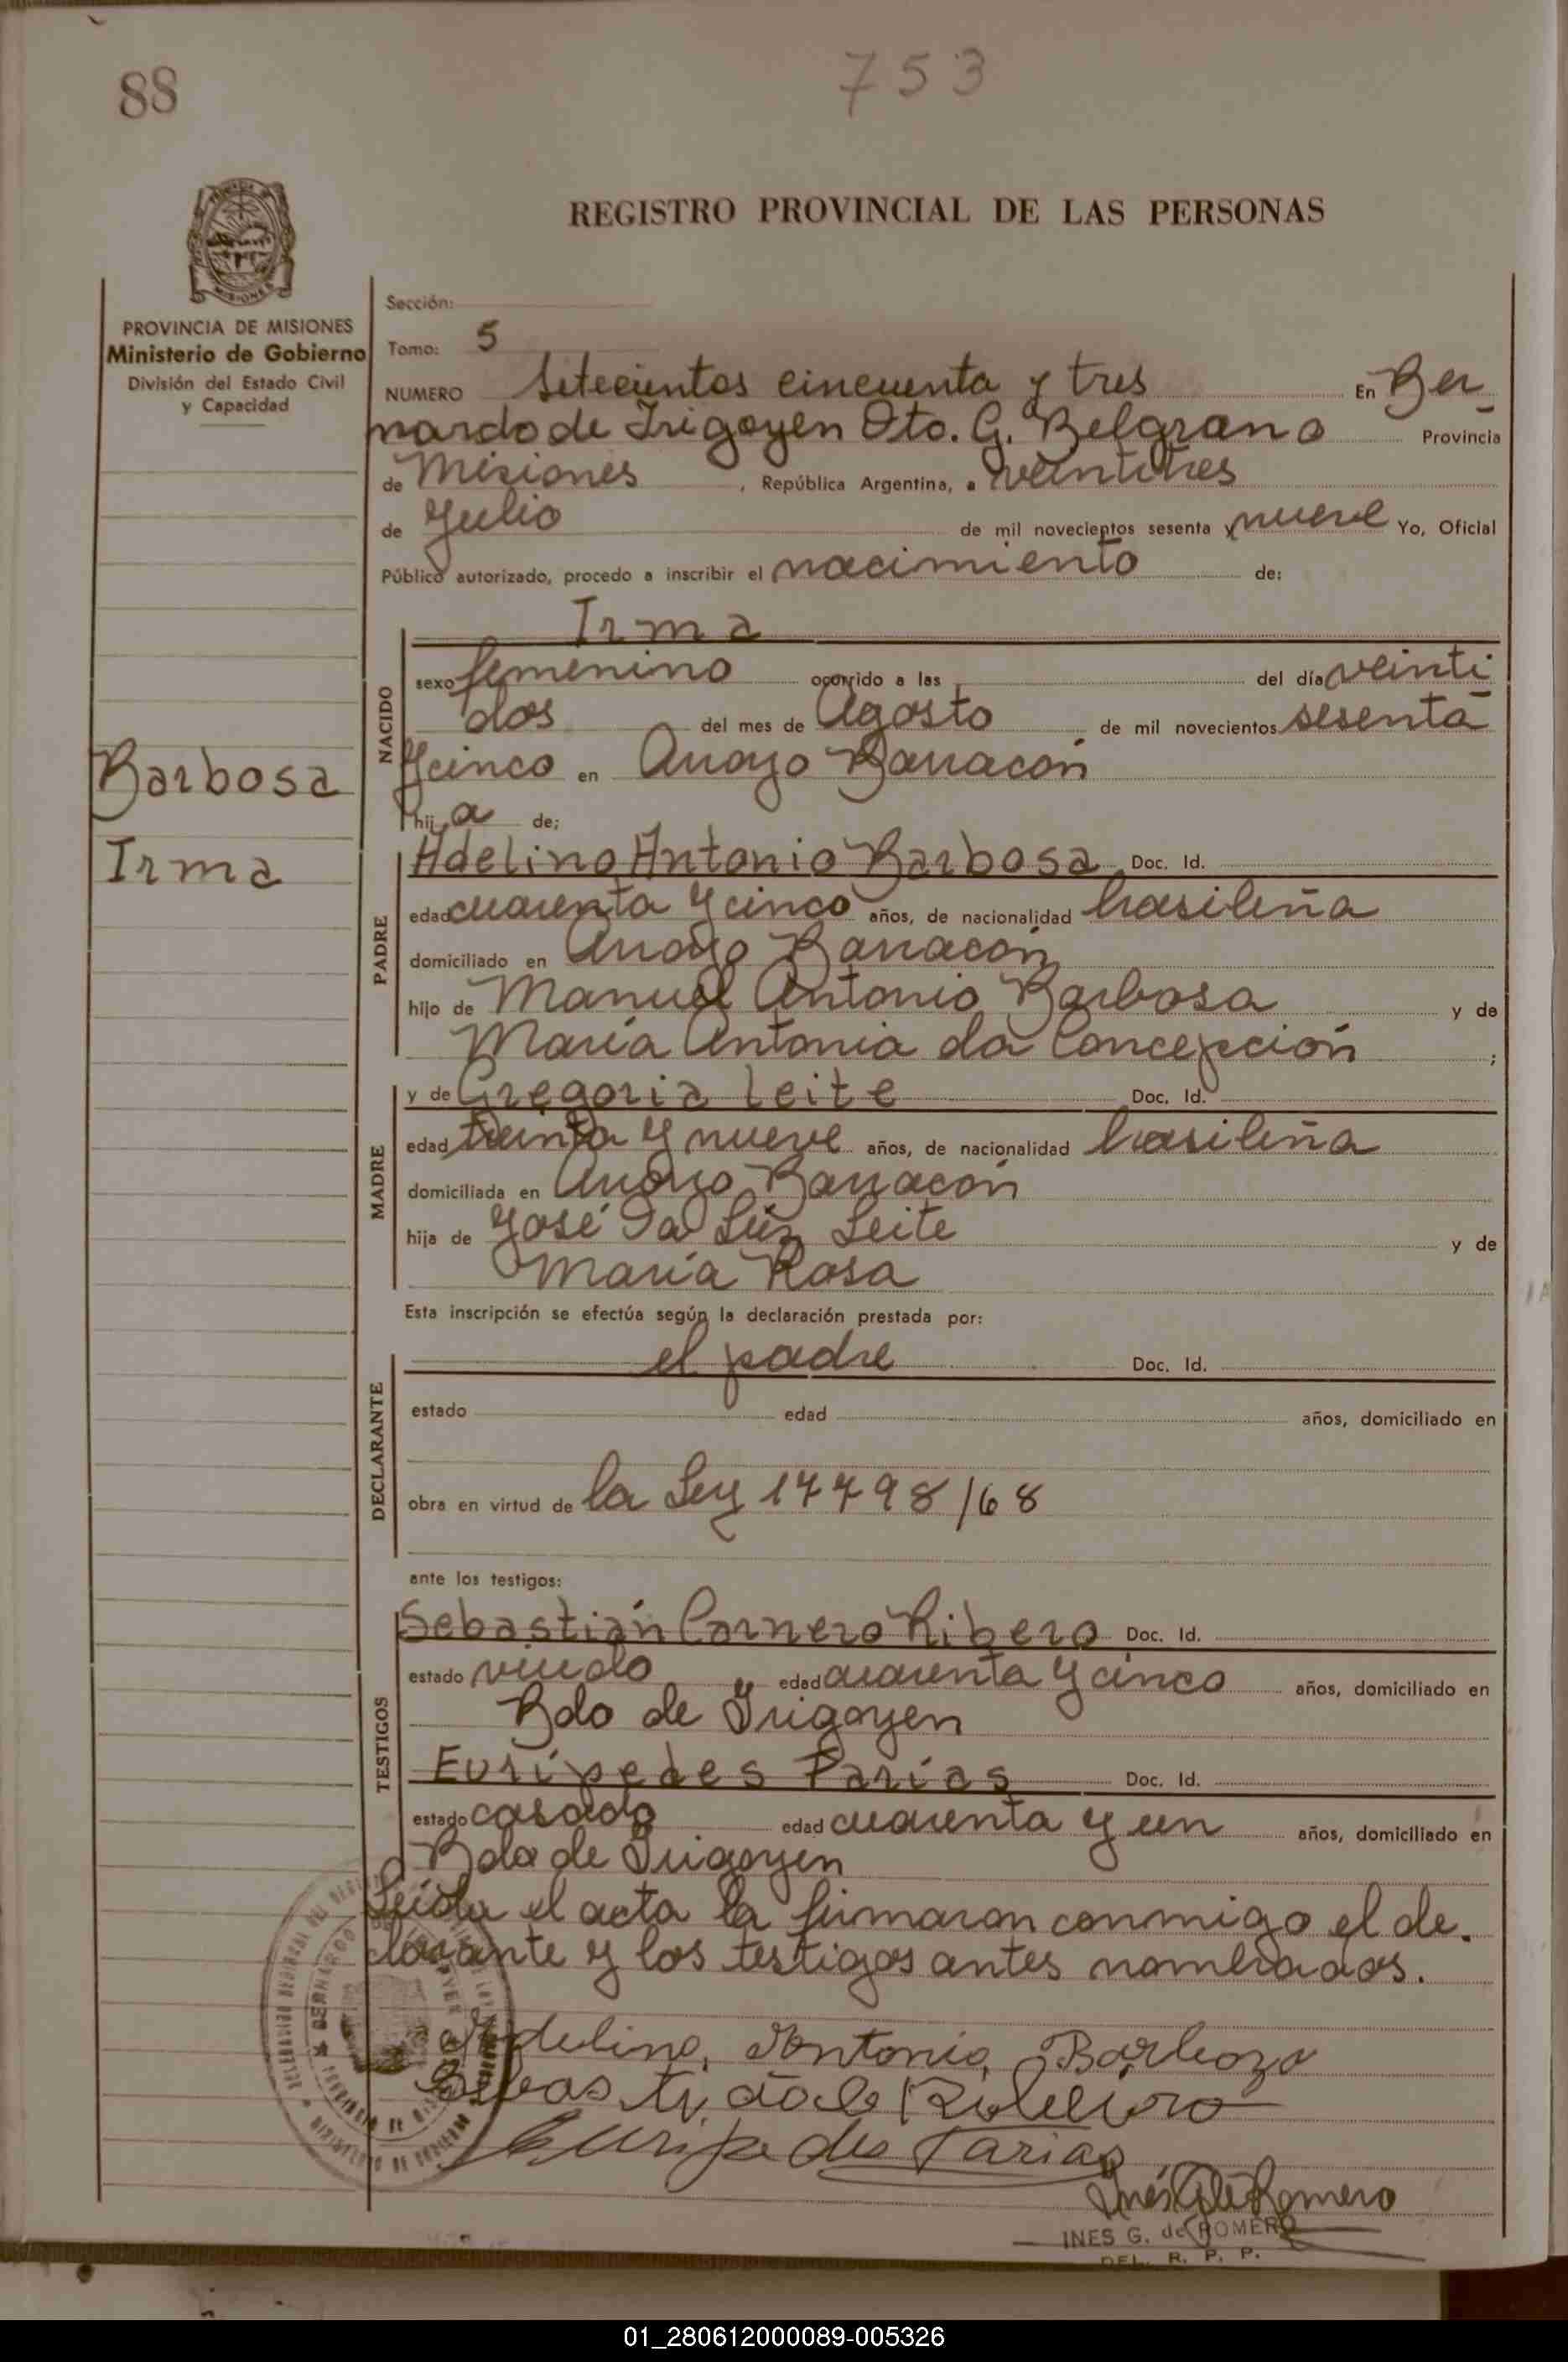 88
753
REGISTRO PROVINCIAL DE LAS PERSONAS
MISIONES
PROVINCIA DE MISIONES
Ministerio de Gobierno
División del Estado Civil
y Capacidad
Barbosa
Irma
Sección:
Tomo: 5
NUMERO Setecientos cincuenta y tres En Ber
nardo de Irigoyen Dto. G. Belgrano Provincia
de Misiones, República Argentina, a veintitres
de Julio de mil novecientos sesenta y nueve Yo, Oficial
Público autorizado, procedo a inscribir el nacimiento de:
Irma
NACIDO
sexo femenino ocorrido a las del día veinti
dos del mes de Agosto de mil novecientos sesenta
y cinco en Arroyo Barracón
hij a de;
PADRE
Adelino Antonio Barbosa Doc. Id.
edad cuarenta y cinco años, de nacionalidad brasileña
domiciliado en Arroyo Barracón
hijo de Manuel Antonio Barbosa y de
María Antonia da Concepción ;
MADRE
y de Gregoria Leite Doc. Id.
edad treinta y nueve años, de nacionalidad brasileña
domiciliada en Arroyo Barracón
hija de José Da Luz Leite y de
María Rosa
Esta inscripción se efectúa según la declaración prestada por:
DECLARANTE
el padre Doc. Id.
estado edad años, domiciliado en
obra en virtud de la Ley 17798/68
ante los testigos:
TESTIGOS
Sebastián Carnero Ribero Doc. Id.
estado viudo edad cuarenta y cinco años, domiciliado en
Bdo de Irigoyen
Eurípedes Farías Doc. Id.
estado casado edad cuarenta y un años, domiciliado en
Bdo de Irigoyen
Leída el acta la firmaron conmigo el de.
clarante y los testigos antes nombrados.
Adelino Antonio Barboza
Ribeiro
Euripedes Farias
Inés G. de Romero
INES G. de ROMERO
DEL. R. P. P.
01_280612000089-005326